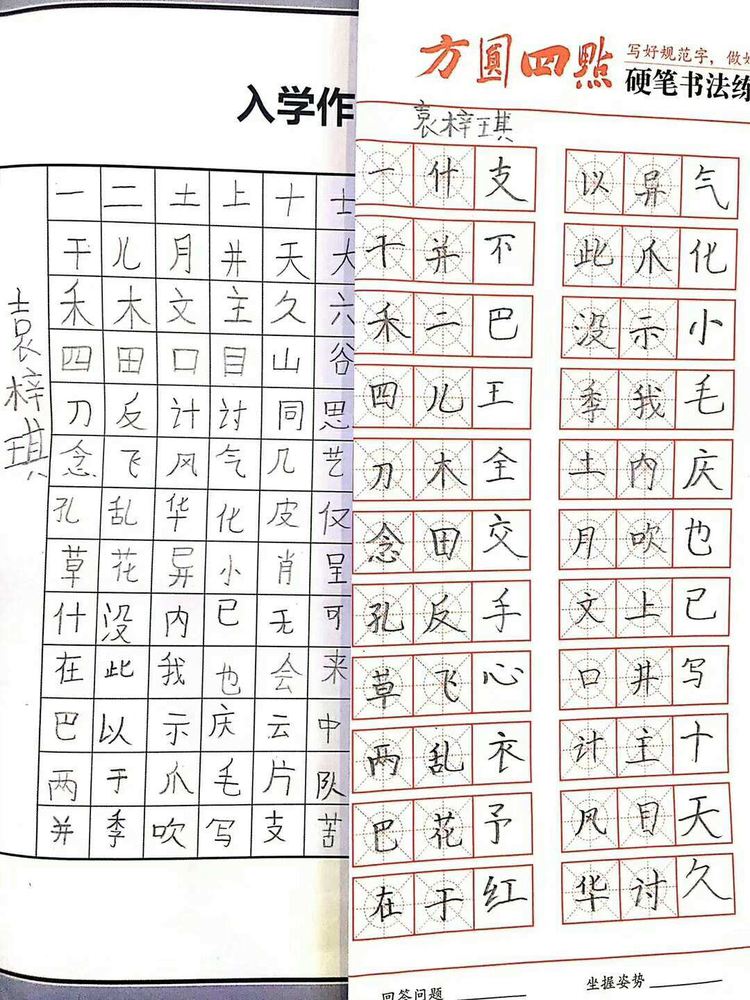 入学作
袁梓琪
一 二 土 上 十 士
干 儿 月 井 天 大
禾 木 文 主 久 六
四 田 口 目 山 谷
刀 反 计 讨 同 思
念 飞 风 气 几 艺
孔 乱 华 化 皮 仅
草 花 异 小 肖 呈
什 没 内 已 无 可
在 此 我 也 会 来
巴 以 示 庆 云 中
两 于 爪 毛 片 队
并 季 吹 写 支 苦
方圆四點
写好规范字，做好
硬笔书法练
袁梓琪
一 什 支 以 异 气
干 并 不 此 爪 化
禾 二 巴 没 示 小
四 儿 王 季 我 毛
刀 木 全 土 内 庆
念 田 交 月 吹 也
孔 反 手 文 上 已
草 飞 心 口 井 写
两 乱 衣 计 主 十
巴 花 予 风 目 天
在 于 红 华 讨 久
回答问题 坐握姿势